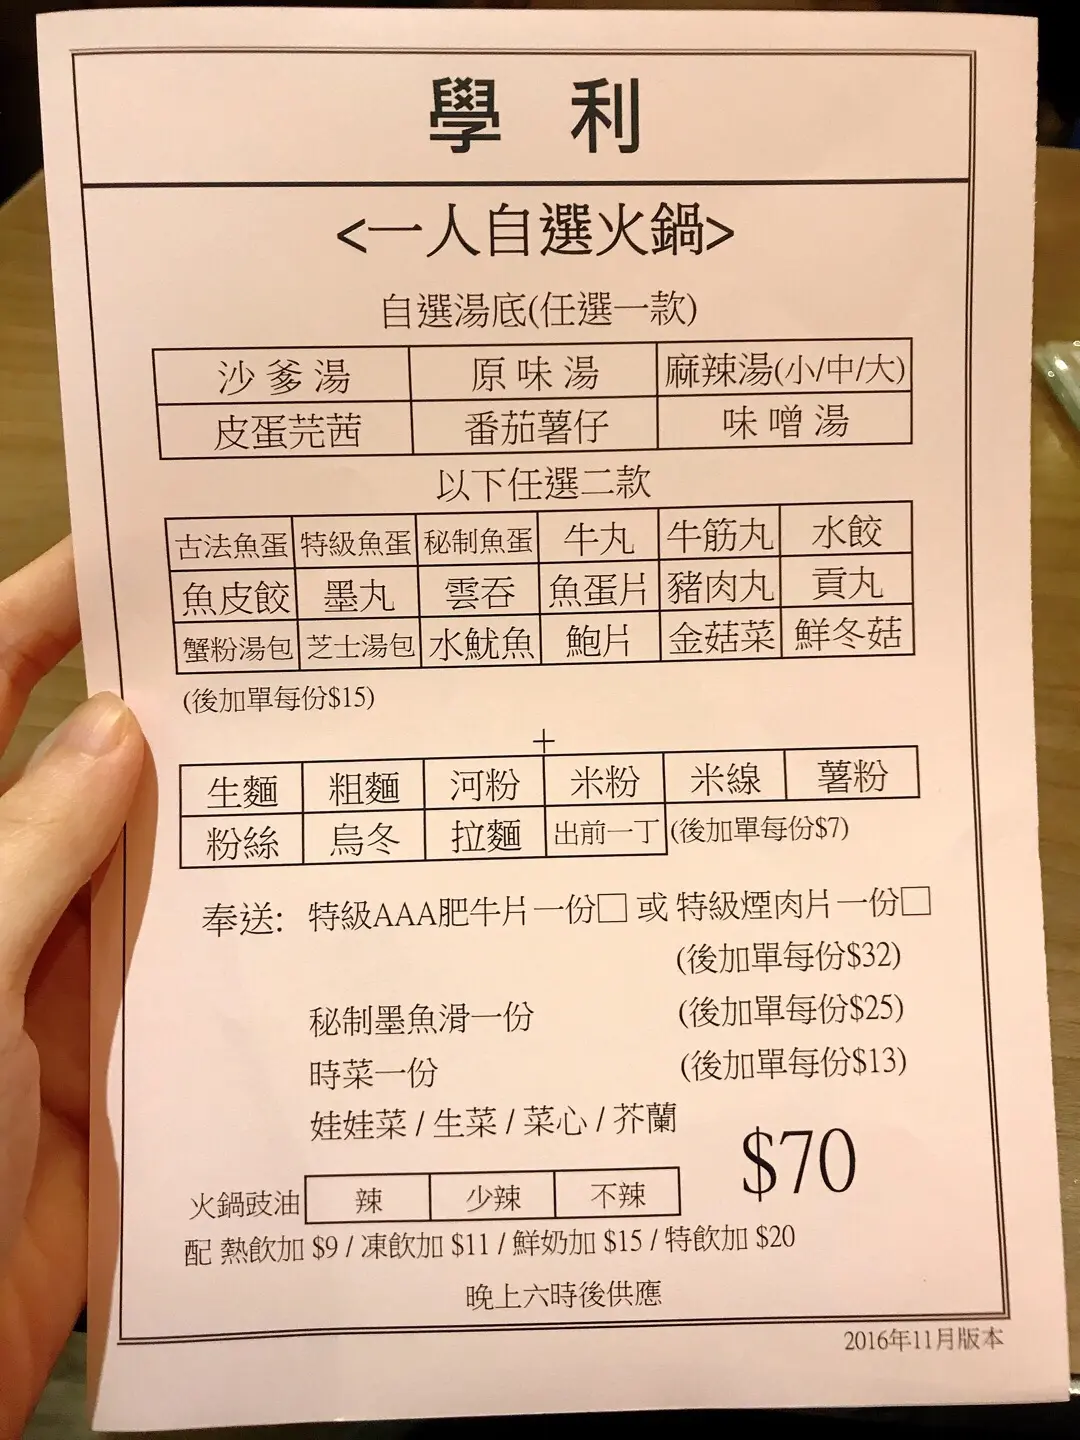 學 利
<一人自選火鍋>
自選湯底(任選一款)
沙爹湯 原味湯 麻辣湯(小/中/大)
皮蛋芫茜 番茄薯仔 味噌湯
以下任選二款
古法魚蛋 特級魚蛋 秘制魚蛋 牛丸 牛筋丸 水餃
魚皮餃 墨丸 雲吞 魚蛋片 豬肉丸 貢丸
蟹粉湯包 芝士湯包 水魷魚 鮑片 金菇菜 鮮冬菇
(後加單每份$15)
+
生麵 粗麵 河粉 米粉 米線 薯粉
粉絲 烏冬 拉麵 出前一丁 (後加單每份$7)
奉送: 特級AAA肥牛片一份□ 或 特級煙肉片一份□
(後加單每份$32)
秘制墨魚滑一份 (後加單每份$25)
時菜一份 (後加單每份$13)
娃娃菜 / 生菜 / 菜心 / 芥蘭
$70
火鍋豉油 辣 少辣 不辣
配 熱飲加 $9 / 凍飲加 $11 / 鮮奶加 $15 / 特飲加 $20
晚上六時後供應
2016年11月版本